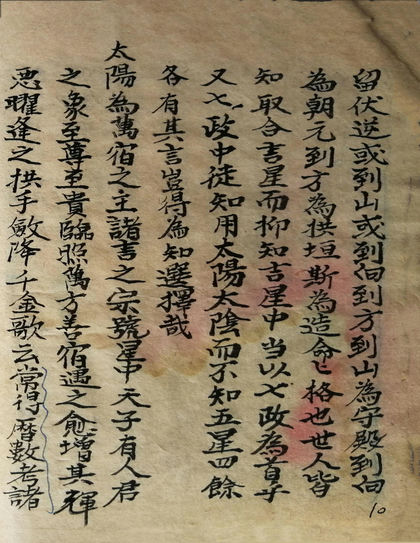 留伏逆或到山或到向到方到山為守殿到向
為朝元到方為拱垣斯為造命上格也世人皆
知取合吉星而抑知吉星中当以七政為首乎
又七政中徒知用太陽太陰而不知五星四餘
各有其言豈得為知選擇哉
太陽為萬宿之主諸吉之宗號星中天子有人君
之象至尊至貴臨照萬方善宿遇之愈增其輝
惡曜逢之拱手斂降千金歌云常得曆數考諸
10